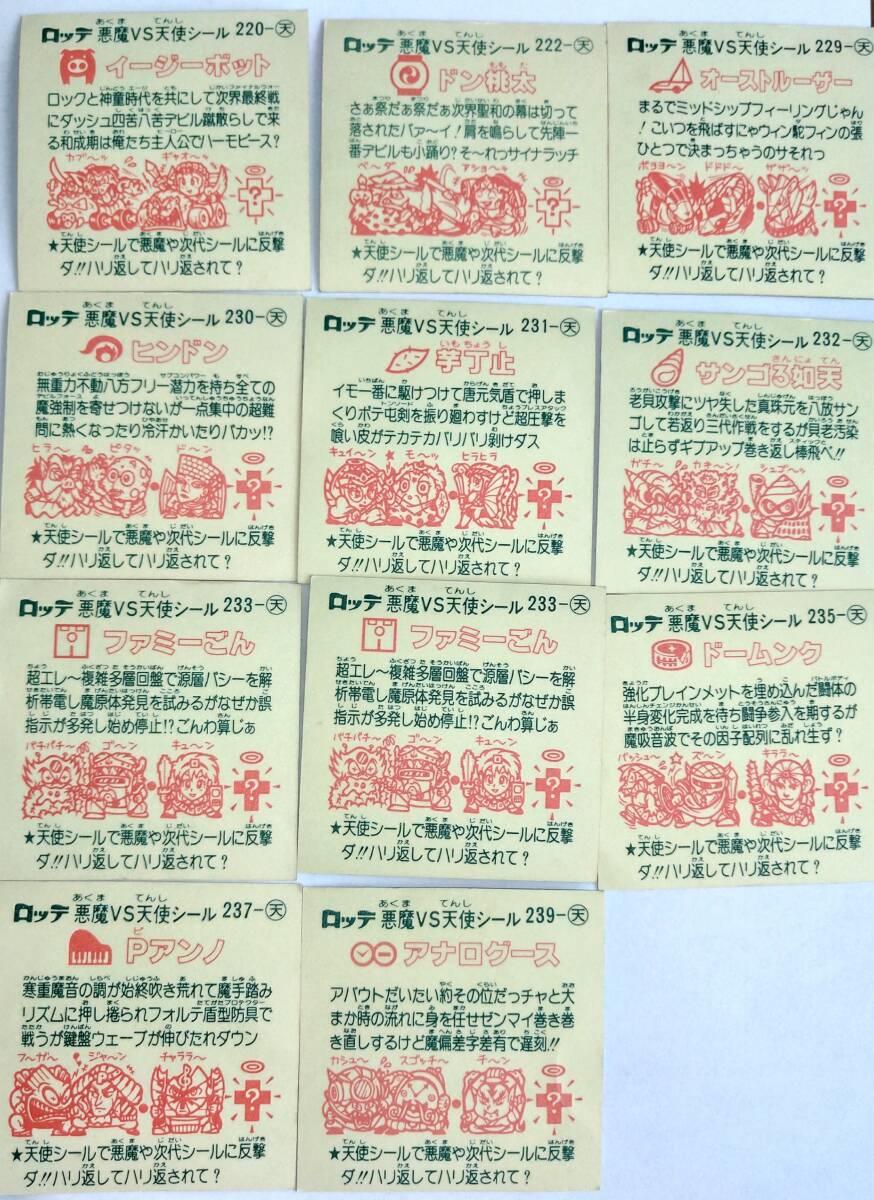 ロッテ 悪魔VS天使シール 220-天
イージーポット
ロックと神童時代を共にして次界最終戦
にダッシュ四苦八苦デビル蹴散らして来
る和成期は俺たち主人公でハーモピース?
カブ〜ッ ギャオ〜ッ
?
★天使シールで悪魔や次代シールに反撃
ダ!!ハリ返してハリ返されて?
ロッテ 悪魔VS天使シール 222-天
ドン桃太
さぁ祭だぁ祭だぁ次界聖和の幕は切って
落されたバァ〜イ!肩を鳴らして先陣一
番デビルも小踊り?そ〜れっサイナラッチ
?
★天使シールで悪魔や次代シールに反撃
ダ!!ハリ返してハリ返されて?
ロッテ 悪魔VS天使シール 229-天
オーストルーザー
まるでミッドシップフィーリングじゃん
!こいつを飛ばすにゃウィン駝フィンの張
ひとつで決まっちゃうのサそれっ
ボヨヨ〜ン ドドド〜 ザザ〜ッ
?
★天使シールで悪魔や次代シールに反撃
ダ!!ハリ返してハリ返されて?
ロッテ 悪魔VS天使シール 230-天
ヒンドン
無重力不動八方フリー潜力を持ち全ての
魔強制を寄せつけないが一点集中の超難
問に熱くなったり冷汗かいたりバカッ!?
ヒラ〜 ピタッ ド〜ン
?
★天使シールで悪魔や次代シールに反撃
ダ!!ハリ返してハリ返されて?
ロッテ 悪魔VS天使シール 231-天
芋丁止
イモ一番に駆けつけて唐元気盾で押しま
くりポテ屯剣を振り廻わすけど超圧撃を
喰い皮がテカテカバリバリ剥けダス
キュイ〜ン モ〜ッ ヒラヒラ
?
★天使シールで悪魔や次代シールに反撃
ダ!!ハリ返してハリ返されて?
ロッテ 悪魔VS天使シール 232-天
サンゴ3如天
老貝攻撃にツヤ失した真珠元を八放サン
ゴして若返り三代作戦をするが貝老汚染
は止らずギブアップ巻き返し棒飛べ!!
ガチ〜 カキ〜ン! シュゴ〜ッ
?
★天使シールで悪魔や次代シールに反撃
ダ!!ハリ返してハリ返されて?
ロッテ 悪魔VS天使シール 233-天
ファミーごん
超エレ〜複雑多層回盤で源層バシーを解
析帯電し魔原体発見を試みるがなぜか誤
指示が多発し始め停止!?ごんわ算じぁ
パチパチ〜 ゴ〜ン キュ〜ン
?
★天使シールで悪魔や次代シールに反撃
ダ!!ハリ返してハリ返されて?
ロッテ 悪魔VS天使シール 233-天
ファミーごん
超エレ〜複雑多層回盤で源層バシーを解
析帯電し魔原体発見を試みるがなぜか誤
指示が多発し始め停止!?ごんわ算じぁ
パチパチ〜 ゴ〜ン キュ〜ン
?
★天使シールで悪魔や次代シールに反撃
ダ!!ハリ返してハリ返されて?
ロッテ 悪魔VS天使シール 235-天
ドームンク
強化ブレインメットを埋め込んだ闘体の
半身変化完成を待ち闘争参入を期するが
魔吸音波でその因子配列に乱れ生ず?
バッシュ〜 ズ〜ン キララ〜
?
★天使シールで悪魔や次代シールに反撃
ダ!!ハリ返してハリ返されて?
ロッテ 悪魔VS天使シール 237-天
Pアンノ
寒重魔音の調が始終吹き荒れて魔手踏み
リズムに押し捲られフォルテ盾型防具で
戦うが鍵盤ウェーブが伸びたれダウン
フ〜ガ〜 ジャ〜ン チャララ〜
?
★天使シールで悪魔や次代シールに反撃
ダ!!ハリ返してハリ返されて?
ロッテ 悪魔VS天使シール 239-天
アナログース
アバウトだいたい約その位だっチャと大
まか時の流れに身を任せゼンマイ巻き巻
き直しするけど魔偏差字差有で遅刻!!
カシュ〜 スゴッチ〜 チ〜ン
?
★天使シールで悪魔や次代シールに反撃
ダ!!ハリ返してハリ返されて?